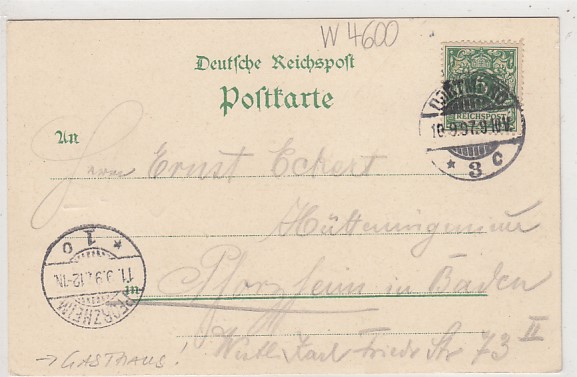 W 4600
Deutsche Reichspost
Postkarte
5
REICHSPOST
DORTMUND
10.9.97.9-10V.
* 3 c
An
Herrn Ernst Eckert
Hütteningenieur
in Pforzheim in Baden
Westl. Karl Friedr. Str. 73 II
PFORZHEIM
11.9.97.12-1N.
* 1 o
→ GASTHAUS!